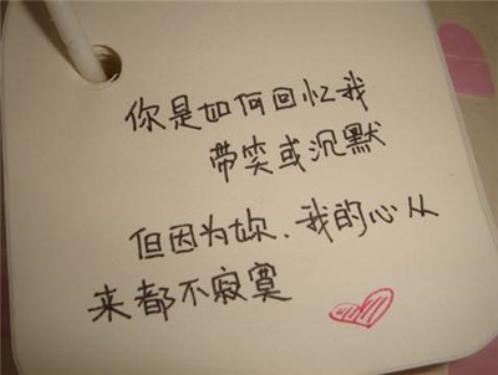 你是如何回忆我
带笑或沉默
但因为妳、我的心从
来都不寂寞